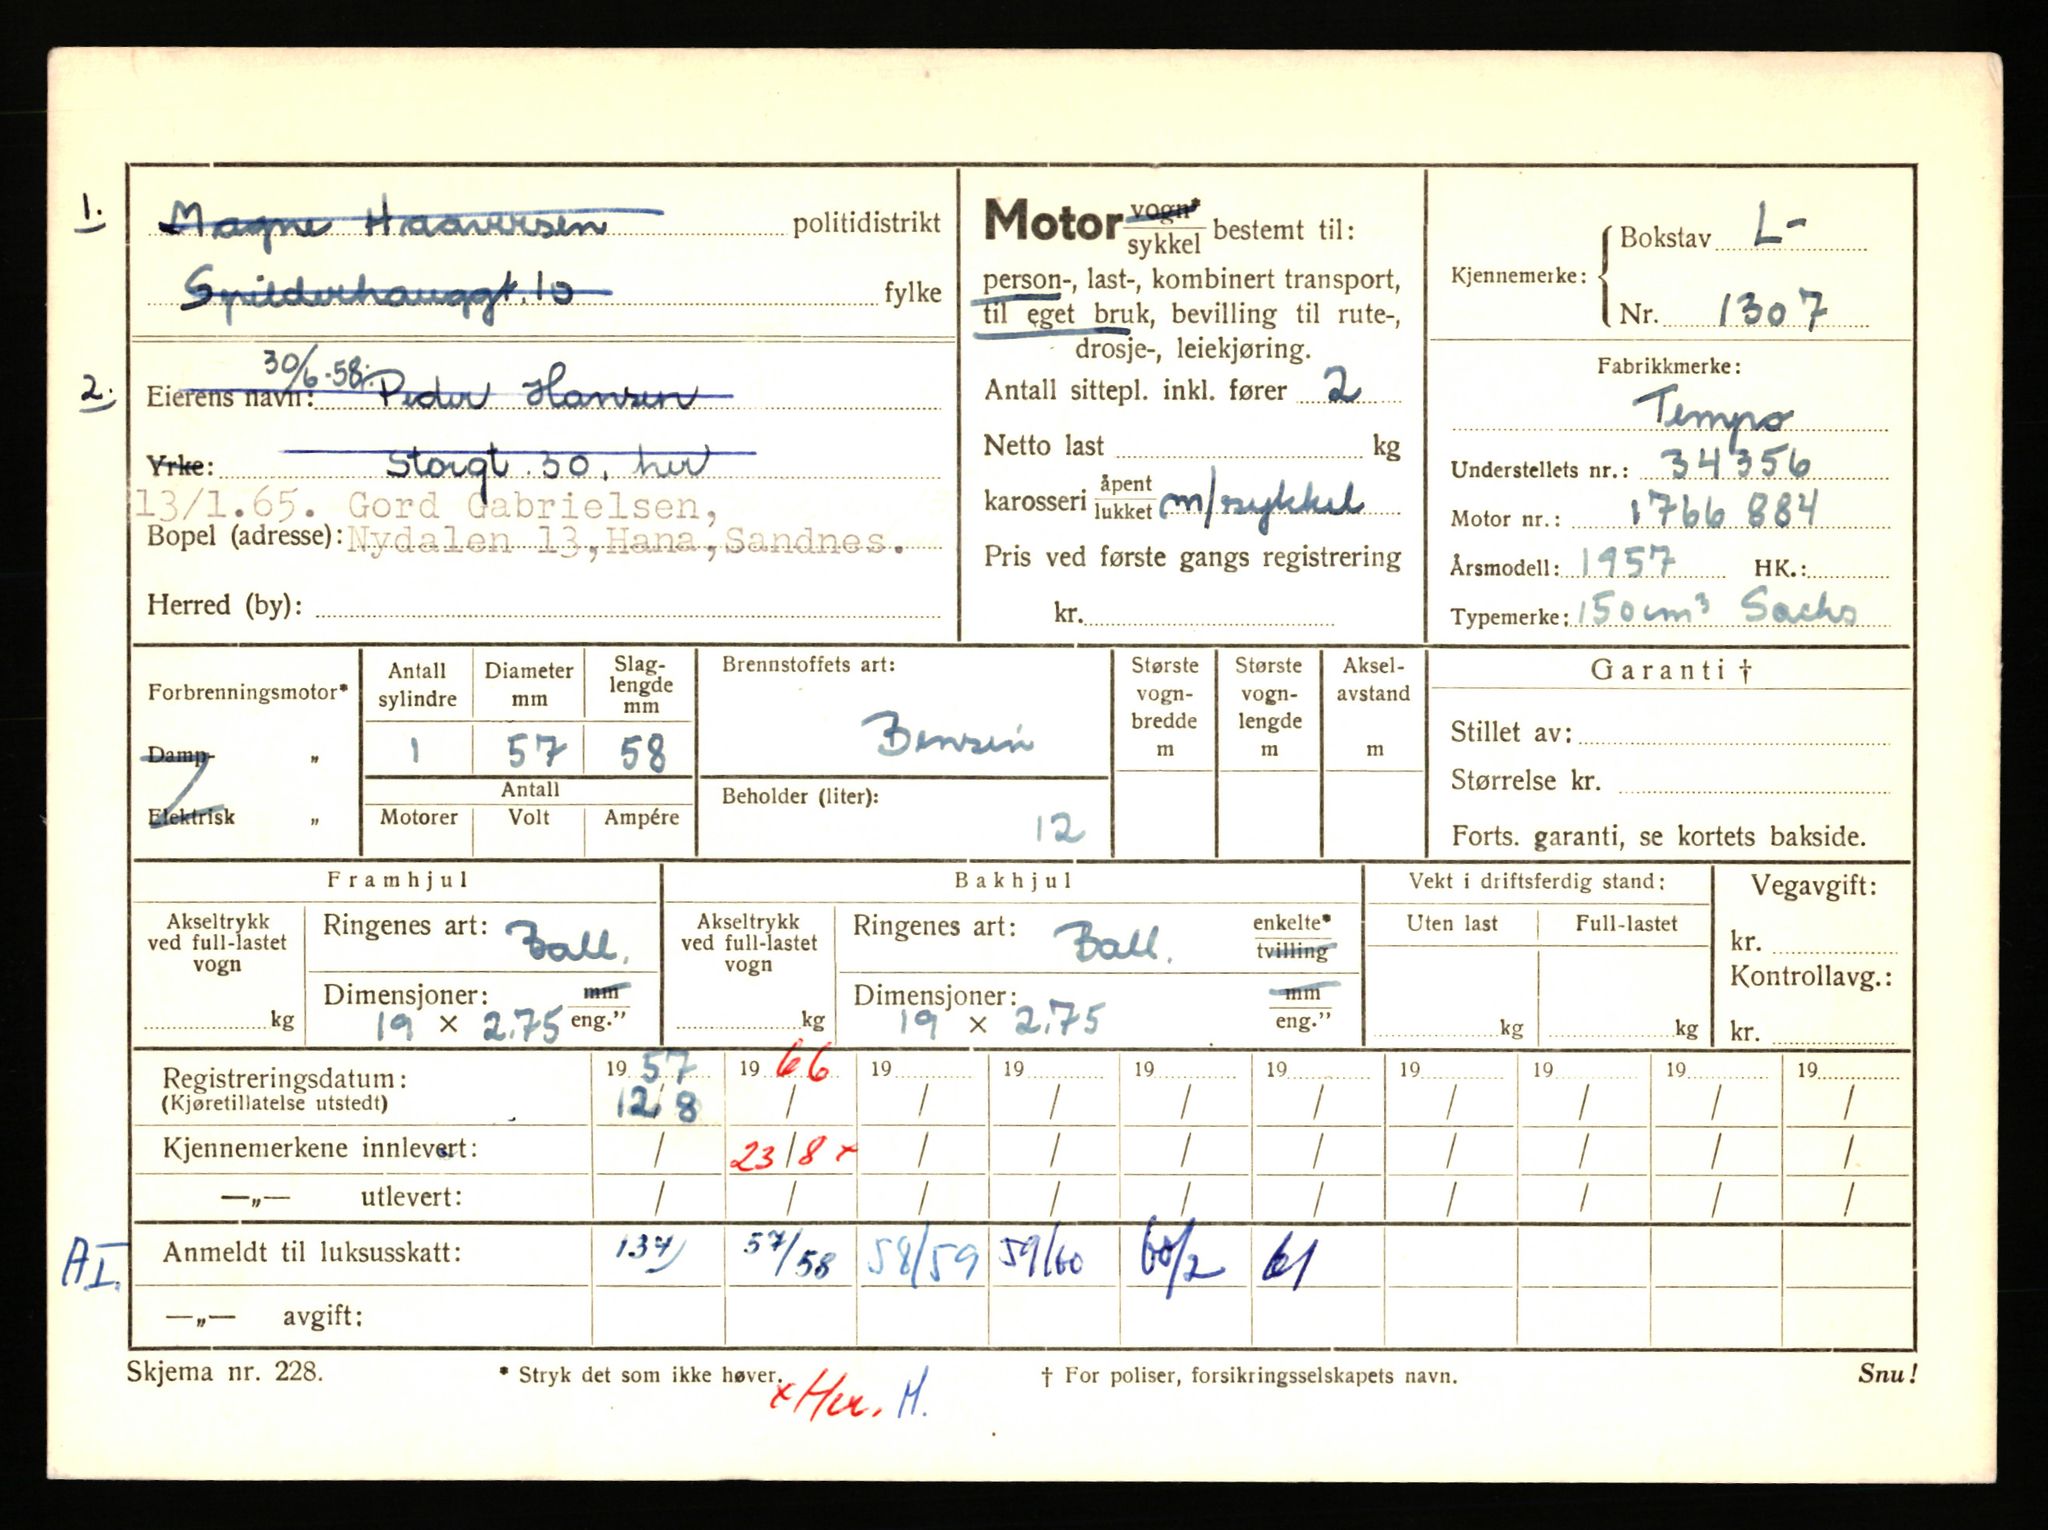 1. Magne Haaversen politidistrikt
Spilderhauggt. 10 fylke
30/6-58:
2. Eierens navn: Peder Hansen
Yrke: Storgt. 30, her
13/1.65. Gord Gabrielsen,
Bopel (adresse): Nydalen 13,Hana,Sandnes.
Herred (by):
Motor vogn* / sykkel bestemt til:
person-, last-, kombinert transport,
til eget bruk, bevilling til rute-,
drosje-, leiekjøring.
Antall sittepl. inkl. fører 2
Netto last kg
karosseri åpent / lukket m/sykkel
Pris ved første gangs registrering
kr.
Kjennemerke: Bokstav L-
Nr. 1307
Fabrikkmerke:
Tempo
Understellets nr.: 34356
Motor nr.: 1766 884
Årsmodell: 1957 HK.:
Typemerke: 150 cm³ Sachs
Forbrenningsmotor*
Damp- „
Elektrisk „
Antall sylindre Diameter mm Slag-lengde mm
1 57 58
Antall
Motorer Volt Ampére
Brennstoffets art:
Bensin
Beholder (liter):
12
Største vogn-bredde m
Største vogn-lengde m
Aksel-avstand m
Garanti †
Stillet av:
Størrelse kr.
Forts. garanti, se kortets bakside.
Framhjul
Akseltrykk ved full-lastet vogn
kg
Ringenes art: Ball.
Dimensjoner: mm
19 × 2.75 eng.”
Bakhjul
Akseltrykk ved full-lastet vogn
kg
Ringenes art: Ball. enkelte* / tvilling
Dimensjoner: mm
19 × 2.75 eng.”
Vekt i driftsferdig stand:
Uten last Full-lastet
kg kg
Vegavgift:
kr.
Kontrollavg.:
kr.
Registreringsdatum: 19 57 19 66 19 19 19 19 19 19 19 19
(Kjøretillatelse utstedt) 12/8 / / / / / / / / /
Kjennemerkene innlevert: / 23/8 × / / / / / / / /
—„— utlevert: / / / / / / / / / /
AI. Anmeldt til luksusskatt: 137) 57/58 58/59 59/60 60/2 61
—„— avgift:
Skjema nr. 228. * Stryk det som ikke høver. † For poliser, forsikringsselskapets navn. Snu!
× Her. H.